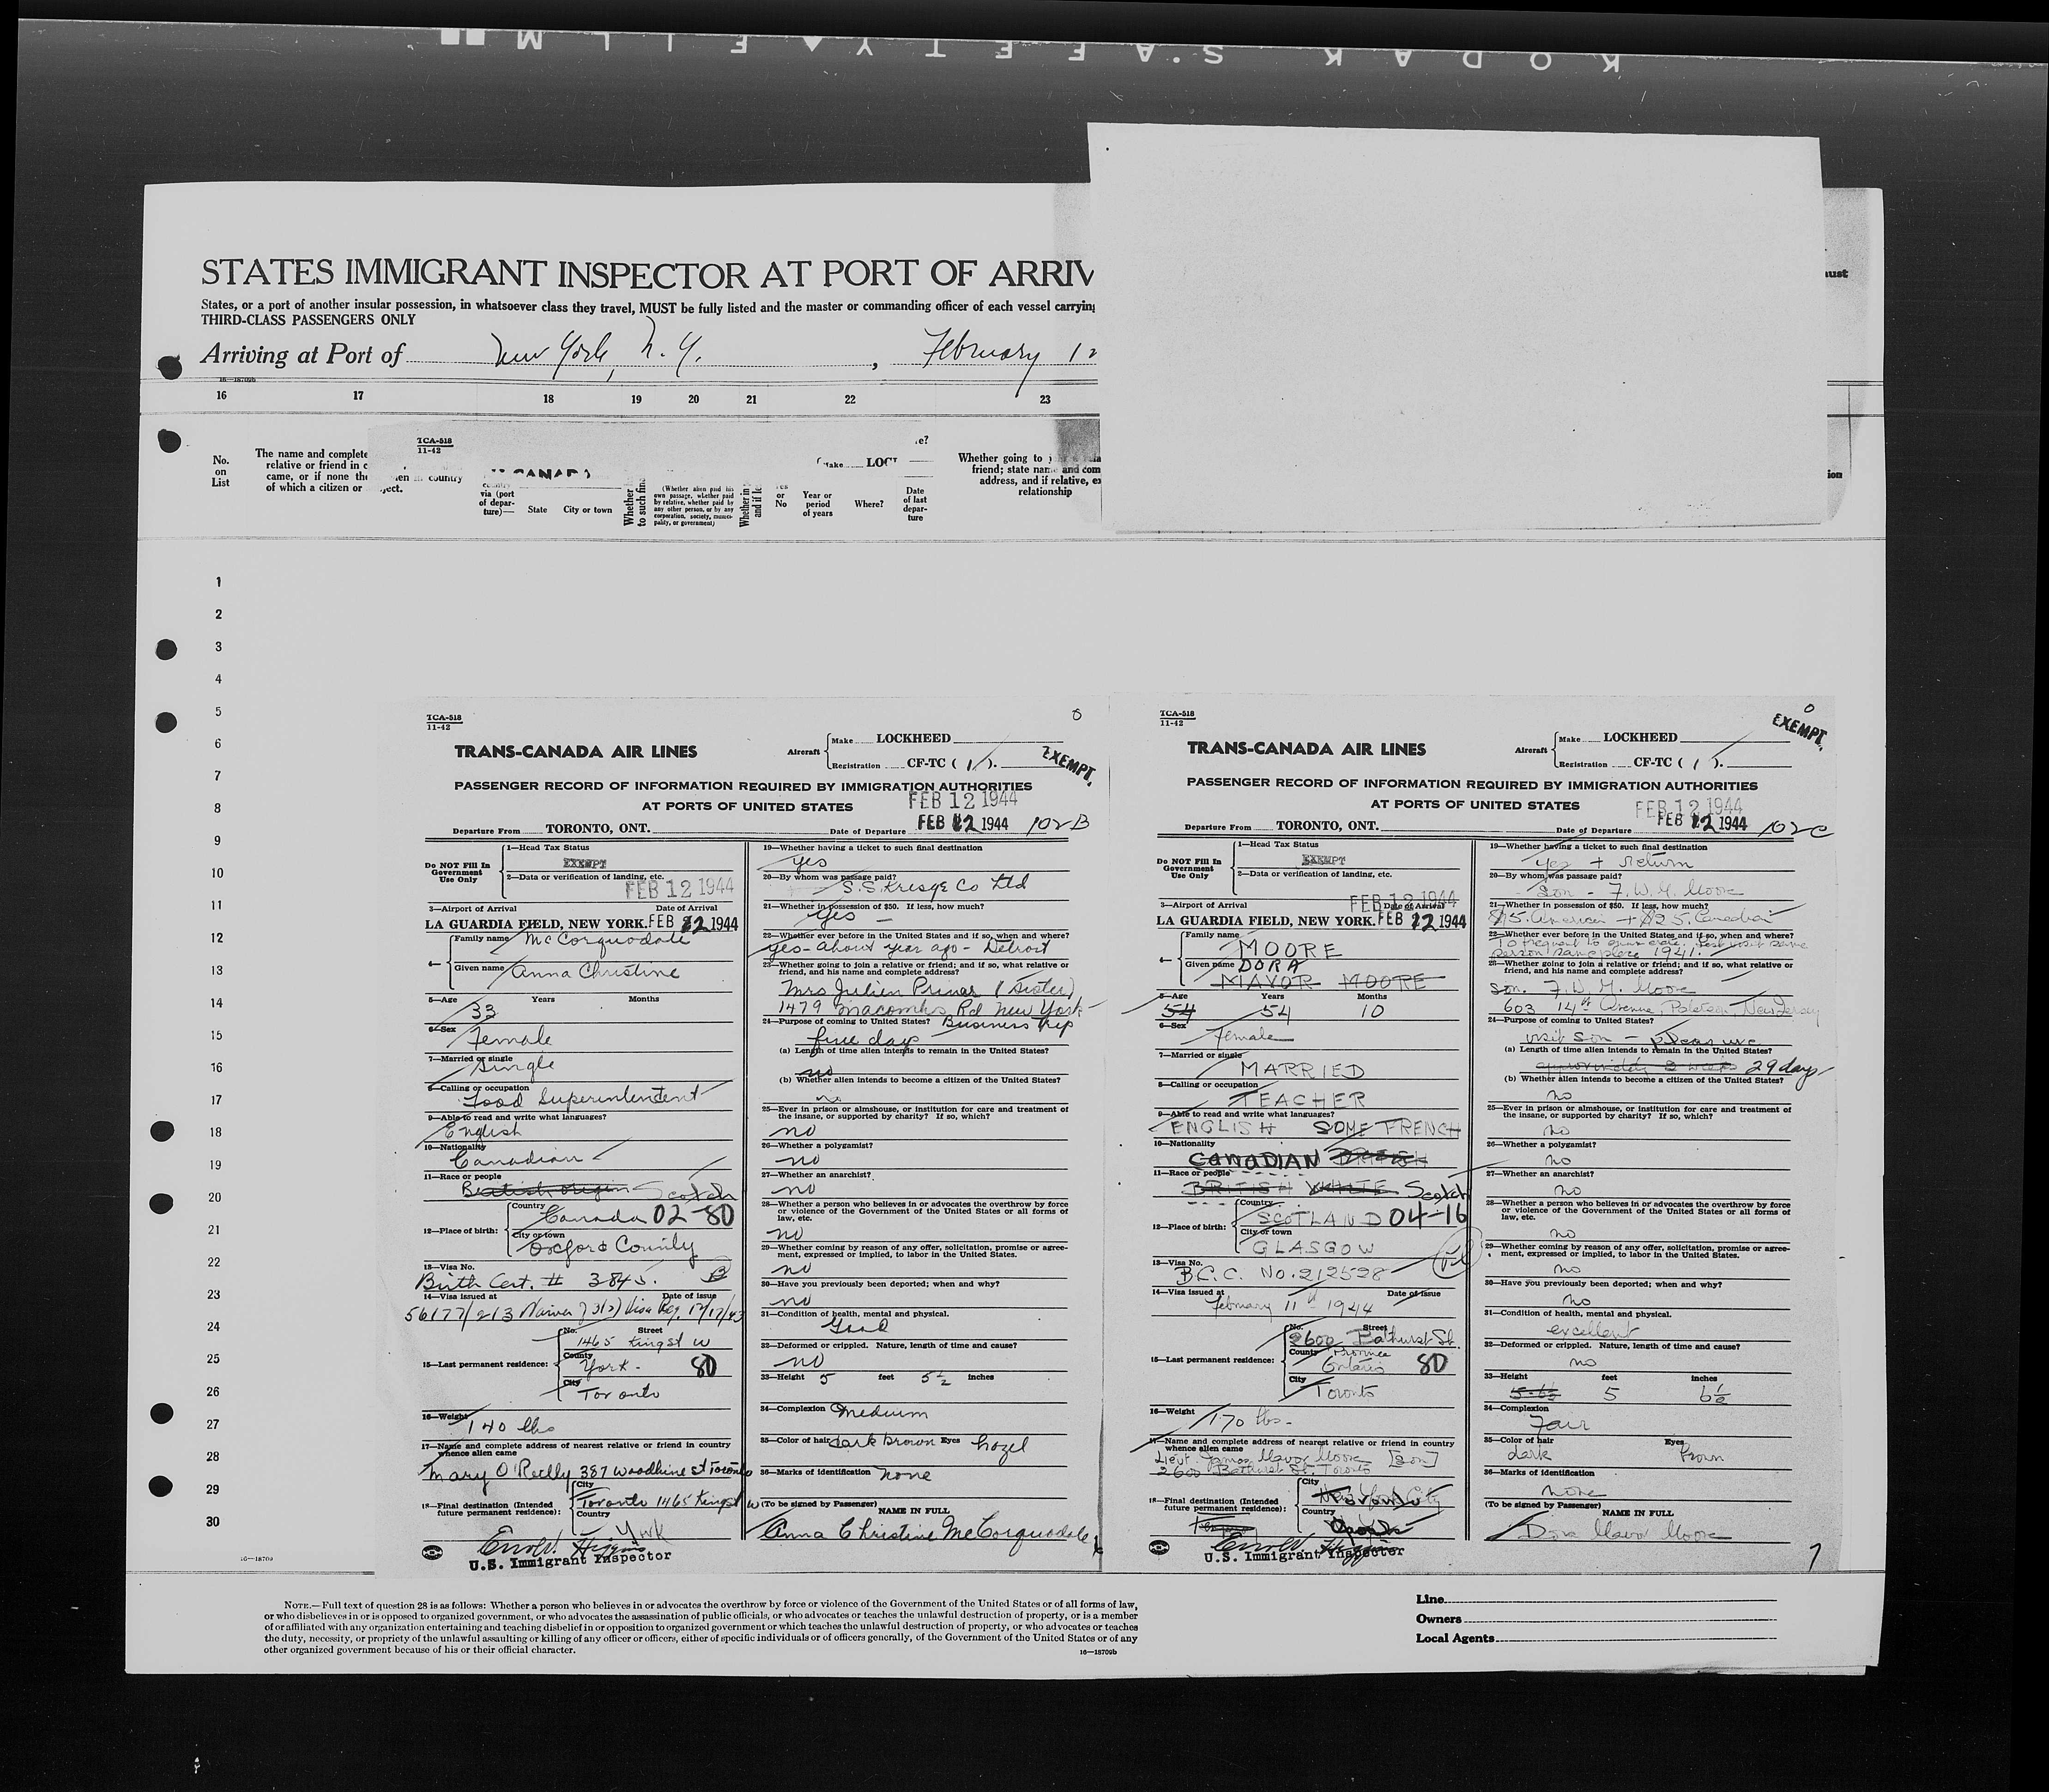 KODAK SAFETY FILM
STATES IMMIGRANT INSPECTOR AT PORT OF ARRIV
States, or a port of another insular possession, in whatsoever class they travel, MUST be fully listed and the master or commanding officer of each vessel carrying
THIRD-CLASS PASSENGERS ONLY
Arriving at Port of New York, N. Y. , February 12
16—18709b
16 17 18 19 20 21 22 23
TCA-518
11-42
No. on List
The name and complete
relative or friend in c
came, or if none the country
of which a citizen or ject.
CANAD
via (port of departure)—
State
City or town
Whether
to such fin
(Whether alien paid his own passage, whether paid by relative, whether paid by any other person, or by any corporation, society, municipality, or government)
Whether in
and if le
or No
Year or period of years
Where?
Date of last departure
Make LOC
Whether going to
friend; state name and com
address, and if relative, ex
relationship
ust
ion
1
2
3
4
5
6
7
8
9
10
11
12
13
14
15
16
17
18
19
20
21
22
23
24
25
26
27
28
29
30
16—18709
TCA-518
11-42
TRANS-CANADA AIR LINES
Aircraft
Make LOCKHEED
Registration CF-TC ( 1 ).
EXEMPT.
PASSENGER RECORD OF INFORMATION REQUIRED BY IMMIGRATION AUTHORITIES
AT PORTS OF UNITED STATES
FEB 12 1944
Departure From TORONTO, ONT.
Date of Departure FEB 12 1944 102B
Do NOT Fill In Government Use Only
1—Head Tax Status
EXEMPT
2—Data or verification of landing, etc.
FEB 12 1944
3—Airport of Arrival Date of Arrival
LA GUARDIA FIELD, NEW YORK. FEB 12 1944
4— Family name McCorquodale
Given name Anna Christine
5—Age Years Months
33
6—Sex
Female
7—Married or single
Single
8—Calling or occupation
Food Superintendent
9—Able to read and write what languages?
English
10—Nationality
Canadian
11—Race or people
British origin Scotch
12—Place of birth: Country
Canada 02-80
City or town
Oxford County
13—Visa No.
Birth Cert. # 3845. B
14—Visa issued at Date of issue
56177/213
15—Last permanent residence: No. Street
1465 King st W
County
York - 80
City
Toronto
16—Weight
140 lbs
17—Name and complete address of nearest relative or friend in country
whence alien came
Mary O'Reilly 387 Woodbine st Toronto
18—Final destination (Intended future permanent residence): City
Toronto 1465 King st W
Country
York
U.S. Immigrant Inspector
19—Whether having a ticket to such final destination
yes
20—By whom was passage paid?
S.S. Kresge Co Ltd
21—Whether in possession of $50. If less, how much?
yes —
22—Whether ever before in the United States and if so, when and where?
yes - about year ago - Detroit
23—Whether going to join a relative or friend; and if so, what relative or
friend, and his name and complete address?
Mrs Julien (Sister)
1479 Macombs Rd New York
24—Purpose of coming to United States? Business trip
five days
(a) Length of time alien intends to remain in the United States?
no
(b) Whether alien intends to become a citizen of the United States?
no
25—Ever in prison or almshouse, or institution for care and treatment of
the insane, or supported by charity? If so, which?
no
26—Whether a polygamist?
no
27—Whether an anarchist?
no
28—Whether a person who believes in or advocates the overthrow by force
or violence of the Government of the United States or all forms of
law, etc.
no
29—Whether coming by reason of any offer, solicitation, promise or agreement, expressed or implied, to labor in the United States.
no
30—Have you previously been deported; when and why?
no
31—Condition of health, mental and physical.
Good
32—Deformed or crippled. Nature, length of time and cause?
no
33—Height 5 feet 5½ inches
34—Complexion Medium
35—Color of hair dark brown Eyes hazel
36—Marks of identification none
(To be signed by Passenger) NAME IN FULL
Anna Christine McCorquodale
TCA-518
11-42
TRANS-CANADA AIR LINES
Aircraft
Make LOCKHEED
Registration CF-TC ( 1 ).
EXEMPT.
PASSENGER RECORD OF INFORMATION REQUIRED BY IMMIGRATION AUTHORITIES
AT PORTS OF UNITED STATES
FEB 12 1944
Departure From TORONTO, ONT.
Date of Departure FEB 12 1944 102C
Do NOT Fill In Government Use Only
1—Head Tax Status
EXEMPT
2—Data or verification of landing, etc.
FEB 12 1944
3—Airport of Arrival Date of Arrival
LA GUARDIA FIELD, NEW YORK. FEB 12 1944
4— Family name
MOORE
Given name DORA
MAVOR MOORE
5—Age Years Months
54 54 10
6—Sex
Female
7—Married or single
MARRIED
8—Calling or occupation
TEACHER
9—Able to read and write what languages?
ENGLISH SOME FRENCH
10—Nationality
CANADIAN BRITISH
11—Race or people
BRITISH WHITE Scotch
12—Place of birth: Country
SCOTLAND 04-16
City or town
GLASGOW
13—Visa No.
B.C.C. No. 212528
14—Visa issued at Date of issue
February 11th 1944
15—Last permanent residence: No. Street
2600 Bathurst St.
County Province
Ontario 80
City
Toronto
16—Weight
170 lbs-
17—Name and complete address of nearest relative or friend in country
whence alien came
Lieut. James Mavor Moore [son]
2600 Bathurst St. Toronto
18—Final destination (Intended future permanent residence): City
New York City
Country
U.S. Immigrant Inspector
19—Whether having a ticket to such final destination
yes + Return
20—By whom was passage paid?
Son - F. W. M. Moore
21—Whether in possession of $50. If less, how much?
$15. American + $25. Canadian
22—Whether ever before in the United States and if so, when and where?
person same place 1941.
23—Whether going to join a relative or friend; and if so, what relative or
friend, and his name and complete address?
Son. F. W. M. Moore
603 14th Avenue, Paterson, New Jersey
24—Purpose of coming to United States?
visit Son - pleasure
(a) Length of time alien intends to remain in the United States?
approximately 2 weeks 29 days
(b) Whether alien intends to become a citizen of the United States?
no
25—Ever in prison or almshouse, or institution for care and treatment of
the insane, or supported by charity? If so, which?
no
26—Whether a polygamist?
no
27—Whether an anarchist?
no
28—Whether a person who believes in or advocates the overthrow by force
or violence of the Government of the United States or all forms of
law, etc.
no
29—Whether coming by reason of any offer, solicitation, promise or agreement, expressed or implied, to labor in the United States.
no
30—Have you previously been deported; when and why?
no
31—Condition of health, mental and physical.
excellent
32—Deformed or crippled. Nature, length of time and cause?
no
33—Height feet inches
5 6½
34—Complexion
Fair
35—Color of hair Eyes
dark Brown
36—Marks of identification
none
(To be signed by Passenger) NAME IN FULL
Dora Mavor Moore
7
NOTE.—Full text of question 28 is as follows: Whether a person who believes in or advocates the overthrow by force or violence of the Government of the United States or of all forms of law,
or who disbelieves in or is opposed to organized government, or who advocates the assassination of public officials, or who advocates or teaches the unlawful destruction of property, or is a member
of or affiliated with any organization entertaining and teaching disbelief in or opposition to organized government or which teaches the unlawful destruction of property, or who advocates or teaches
the duty, necessity, or propriety of the unlawful assaulting or killing of any officer or officers, either of specific individuals or of officers generally, of the Government of the United States or of any
other organized government because of his or their official character.
16—18709b
Line
Owners
Local Agents